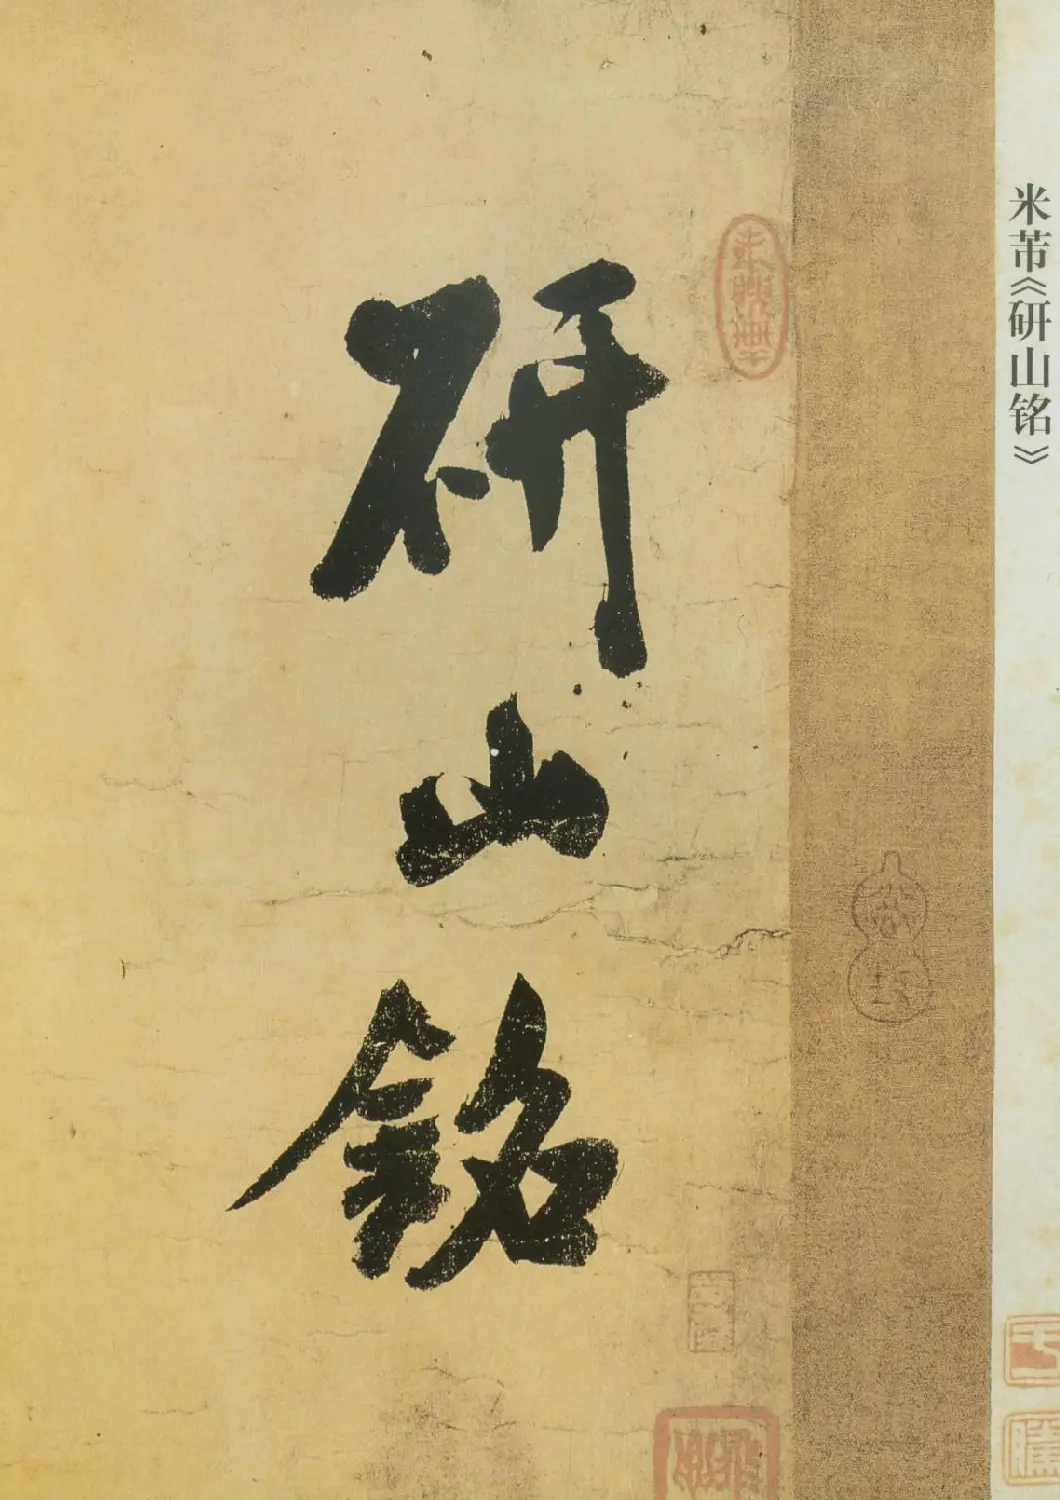 米芾《研山铭》
研
山
銘